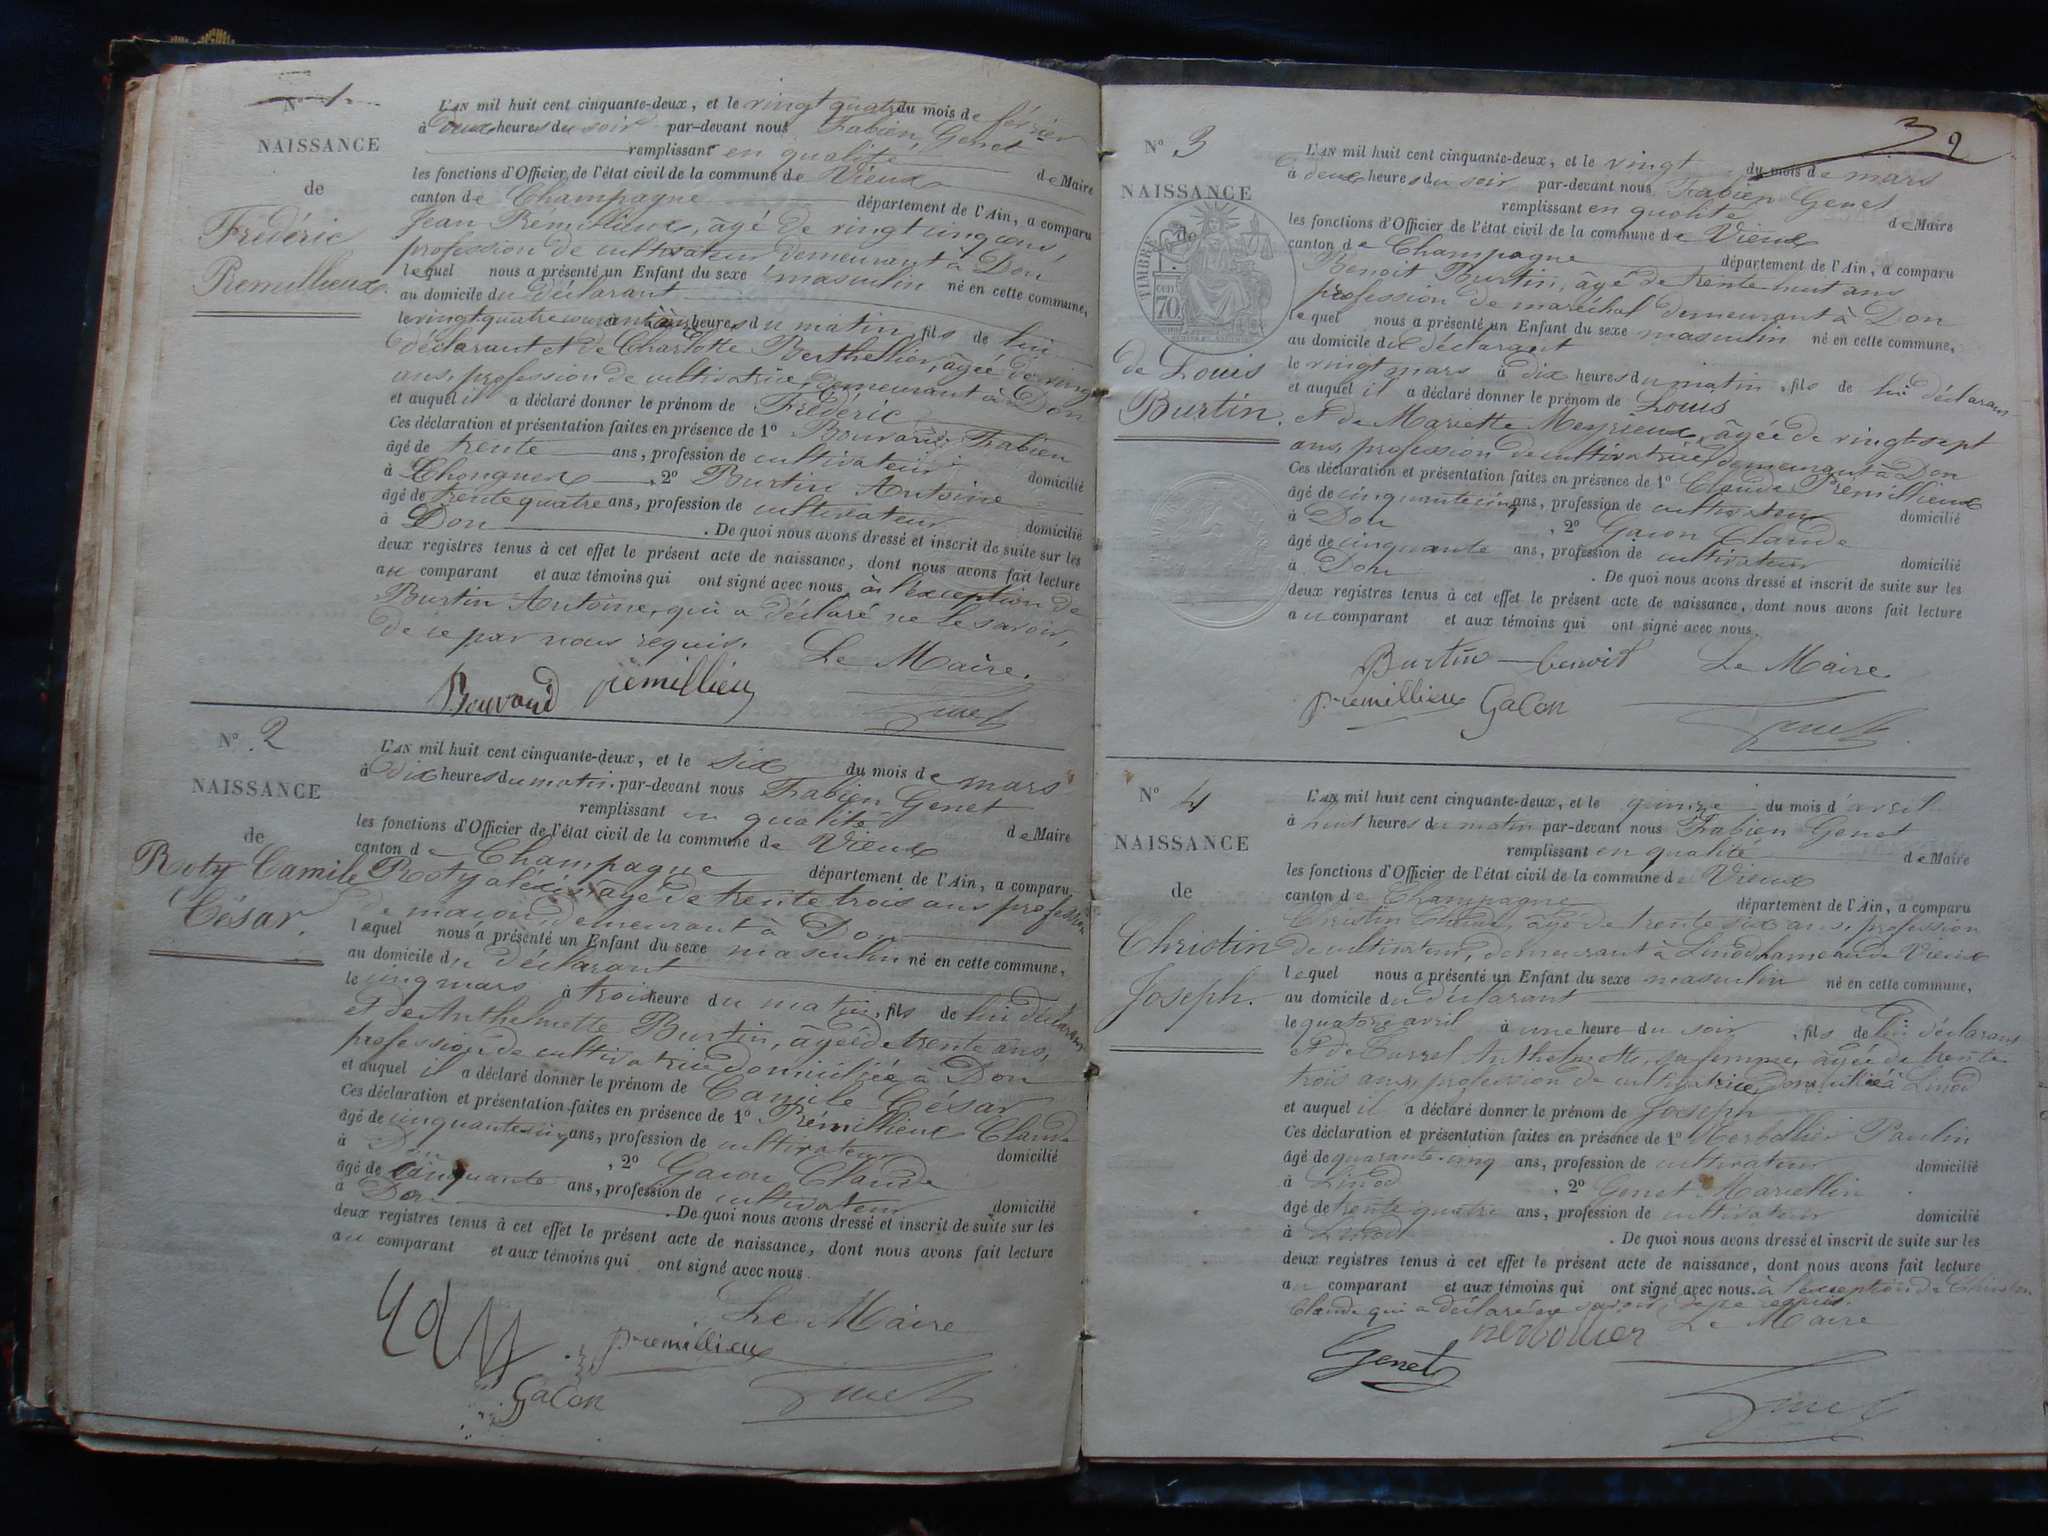 N° 1
NAISSANCE
de
Frédéric
Premillieux
L'AN mil huit cent cinquante-deux, et le vingt quatre du mois de février
à deux heures du soir par-devant nous Fabien Genet
remplissant en qualité de Maire
les fonctions d'Officier de l'état civil de la commune de Vieux
canton de Champagne département de l'Ain, a comparu
Jean Prémillieux, âgé de vingt cinq ans,
profession de cultivateur demeurant à Don
lequel nous a présenté un Enfant du sexe masculin né en cette commune,
au domicile du déclarant
le vingt quatre courant à heures du matin, fils de lui
déclarant et de Charlotte Berthellier, âgée de vingt
ans, profession de cultivatrice, demeurant à Don
et auquel il a déclaré donner le prénom de Frédéric
Ces déclaration et présentation faites en présence de 1° Fabien
âgé de trente ans, profession de cultivateur domicilié
à Chongnes , 2° Burtin Antoine
âgé de trente quatre ans, profession de cultivateur domicilié
à Don . De quoi nous avons dressé et inscrit de suite sur les
deux registres tenus à cet effet le présent acte de naissance, dont nous avons fait lecture
au comparant et aux témoins qui ont signé avec nous à l'exception de
Burtin Antoine, qui a déclaré ne le savoir,
de ce par nous requis. Le Maire.
Bouvard premillieux
Genet
N° 2
NAISSANCE
de
Roty Camile
César.
L'AN mil huit cent cinquante-deux, et le six du mois de mars
à dix heures du matin par-devant nous Fabien Genet
remplissant en qualité de Maire
les fonctions d'Officier de l'état civil de la commune de Vieux
canton de Champagne département de l'Ain, a comparu
Roty aléxis âgé de trente trois ans profession
de macon demeurant à Don
lequel nous a présenté un Enfant du sexe masculin né en cette commune,
au domicile du déclarant
le cinq mars à trois heure du matin, fils de lui déclarant
et de Anthelmette Burtin, âgée de trente ans,
profession de cultivatrice domiciliée à Don
et auquel il a déclaré donner le prénom de Camile César
Ces déclaration et présentation faites en présence de 1° Prémillieux Claude
âgé de cinquante cinq ans, profession de cultivateur domicilié
à Don , 2° Gacon Claude
âgé de cinquante ans, profession de cultivateur domicilié
à Don . De quoi nous avons dressé et inscrit de suite sur les
deux registres tenus à cet effet le présent acte de naissance, dont nous avons fait lecture
au comparant et aux témoins qui ont signé avec nous.
Le Maire
premillieux
Gacon Genet
3 2
N° 3
NAISSANCE
de
TIMBRE
70
de Louis
Burtin.
L'AN mil huit cent cinquante-deux, et le vingt du mois de mars
à deux heures du soir par-devant nous Fabien Genet
remplissant en qualité de Maire
les fonctions d'Officier de l'état civil de la commune de Vieux
canton de Champagne département de l'Ain, a comparu
Benoit Burtin, âgé de trente huit ans
profession de maréchal demeurant à Don
lequel nous a présenté un Enfant du sexe masculin né en cette commune,
au domicile du déclarant
le vingt mars à dix heures du matin, fils de lui déclarant
et auquel il a déclaré donner le prénom de Louis
et de Mariette Meyrieux, âgée de vingt sept
ans, profession de cultivatrice, demeurant à Don
Ces déclaration et présentation faites en présence de 1° Claude Prémillieux
âgé de cinquante cinq ans, profession de cultivateur domicilié
à Don , 2° Gacon Claude
âgé de cinquante ans, profession de cultivateur domicilié
à Don . De quoi nous avons dressé et inscrit de suite sur les
deux registres tenus à cet effet le présent acte de naissance, dont nous avons fait lecture
au comparant et aux témoins qui ont signé avec nous.
Burtin benoit Le Maire.
premillieux Gacon Genet
N° 4
NAISSANCE
de
Christin
Joseph.
L'AN mil huit cent cinquante-deux, et le quinze du mois d'avril
à huit heures du matin par-devant nous Fabien Genet
remplissant en qualité de Maire
les fonctions d'Officier de l'état civil de la commune de Vieux
canton de Champagne département de l'Ain, a comparu
Christin Claude, âgé de trente six ans, profession
de cultivateur, demeurant à Linod hameau de Vieux
lequel nous a présenté un Enfant du sexe masculin né en cette commune,
au domicile du déclarant
le quatorze avril à une heure du soir , fils de lui déclarant
et de Anthelmette, sa femme, âgée de trente
trois ans, profession de cultivatrice, domiciliée à Linod
et auquel il a déclaré donner le prénom de Joseph
Ces déclaration et présentation faites en présence de 1° Merbollier Paulin
âgé de quarante cinq ans, profession de cultivateur domicilié
à Linod , 2° Genet Marcellin
âgé de trente quatre ans, profession de cultivateur domicilié
à Linod . De quoi nous avons dressé et inscrit de suite sur les
deux registres tenus à cet effet le présent acte de naissance, dont nous avons fait lecture
au comparant et aux témoins qui ont signé avec nous à l'exception de Christin
Claude qui a déclaré ne savoir, de ce requis.
merbollier Le Maire
Genet
Genet